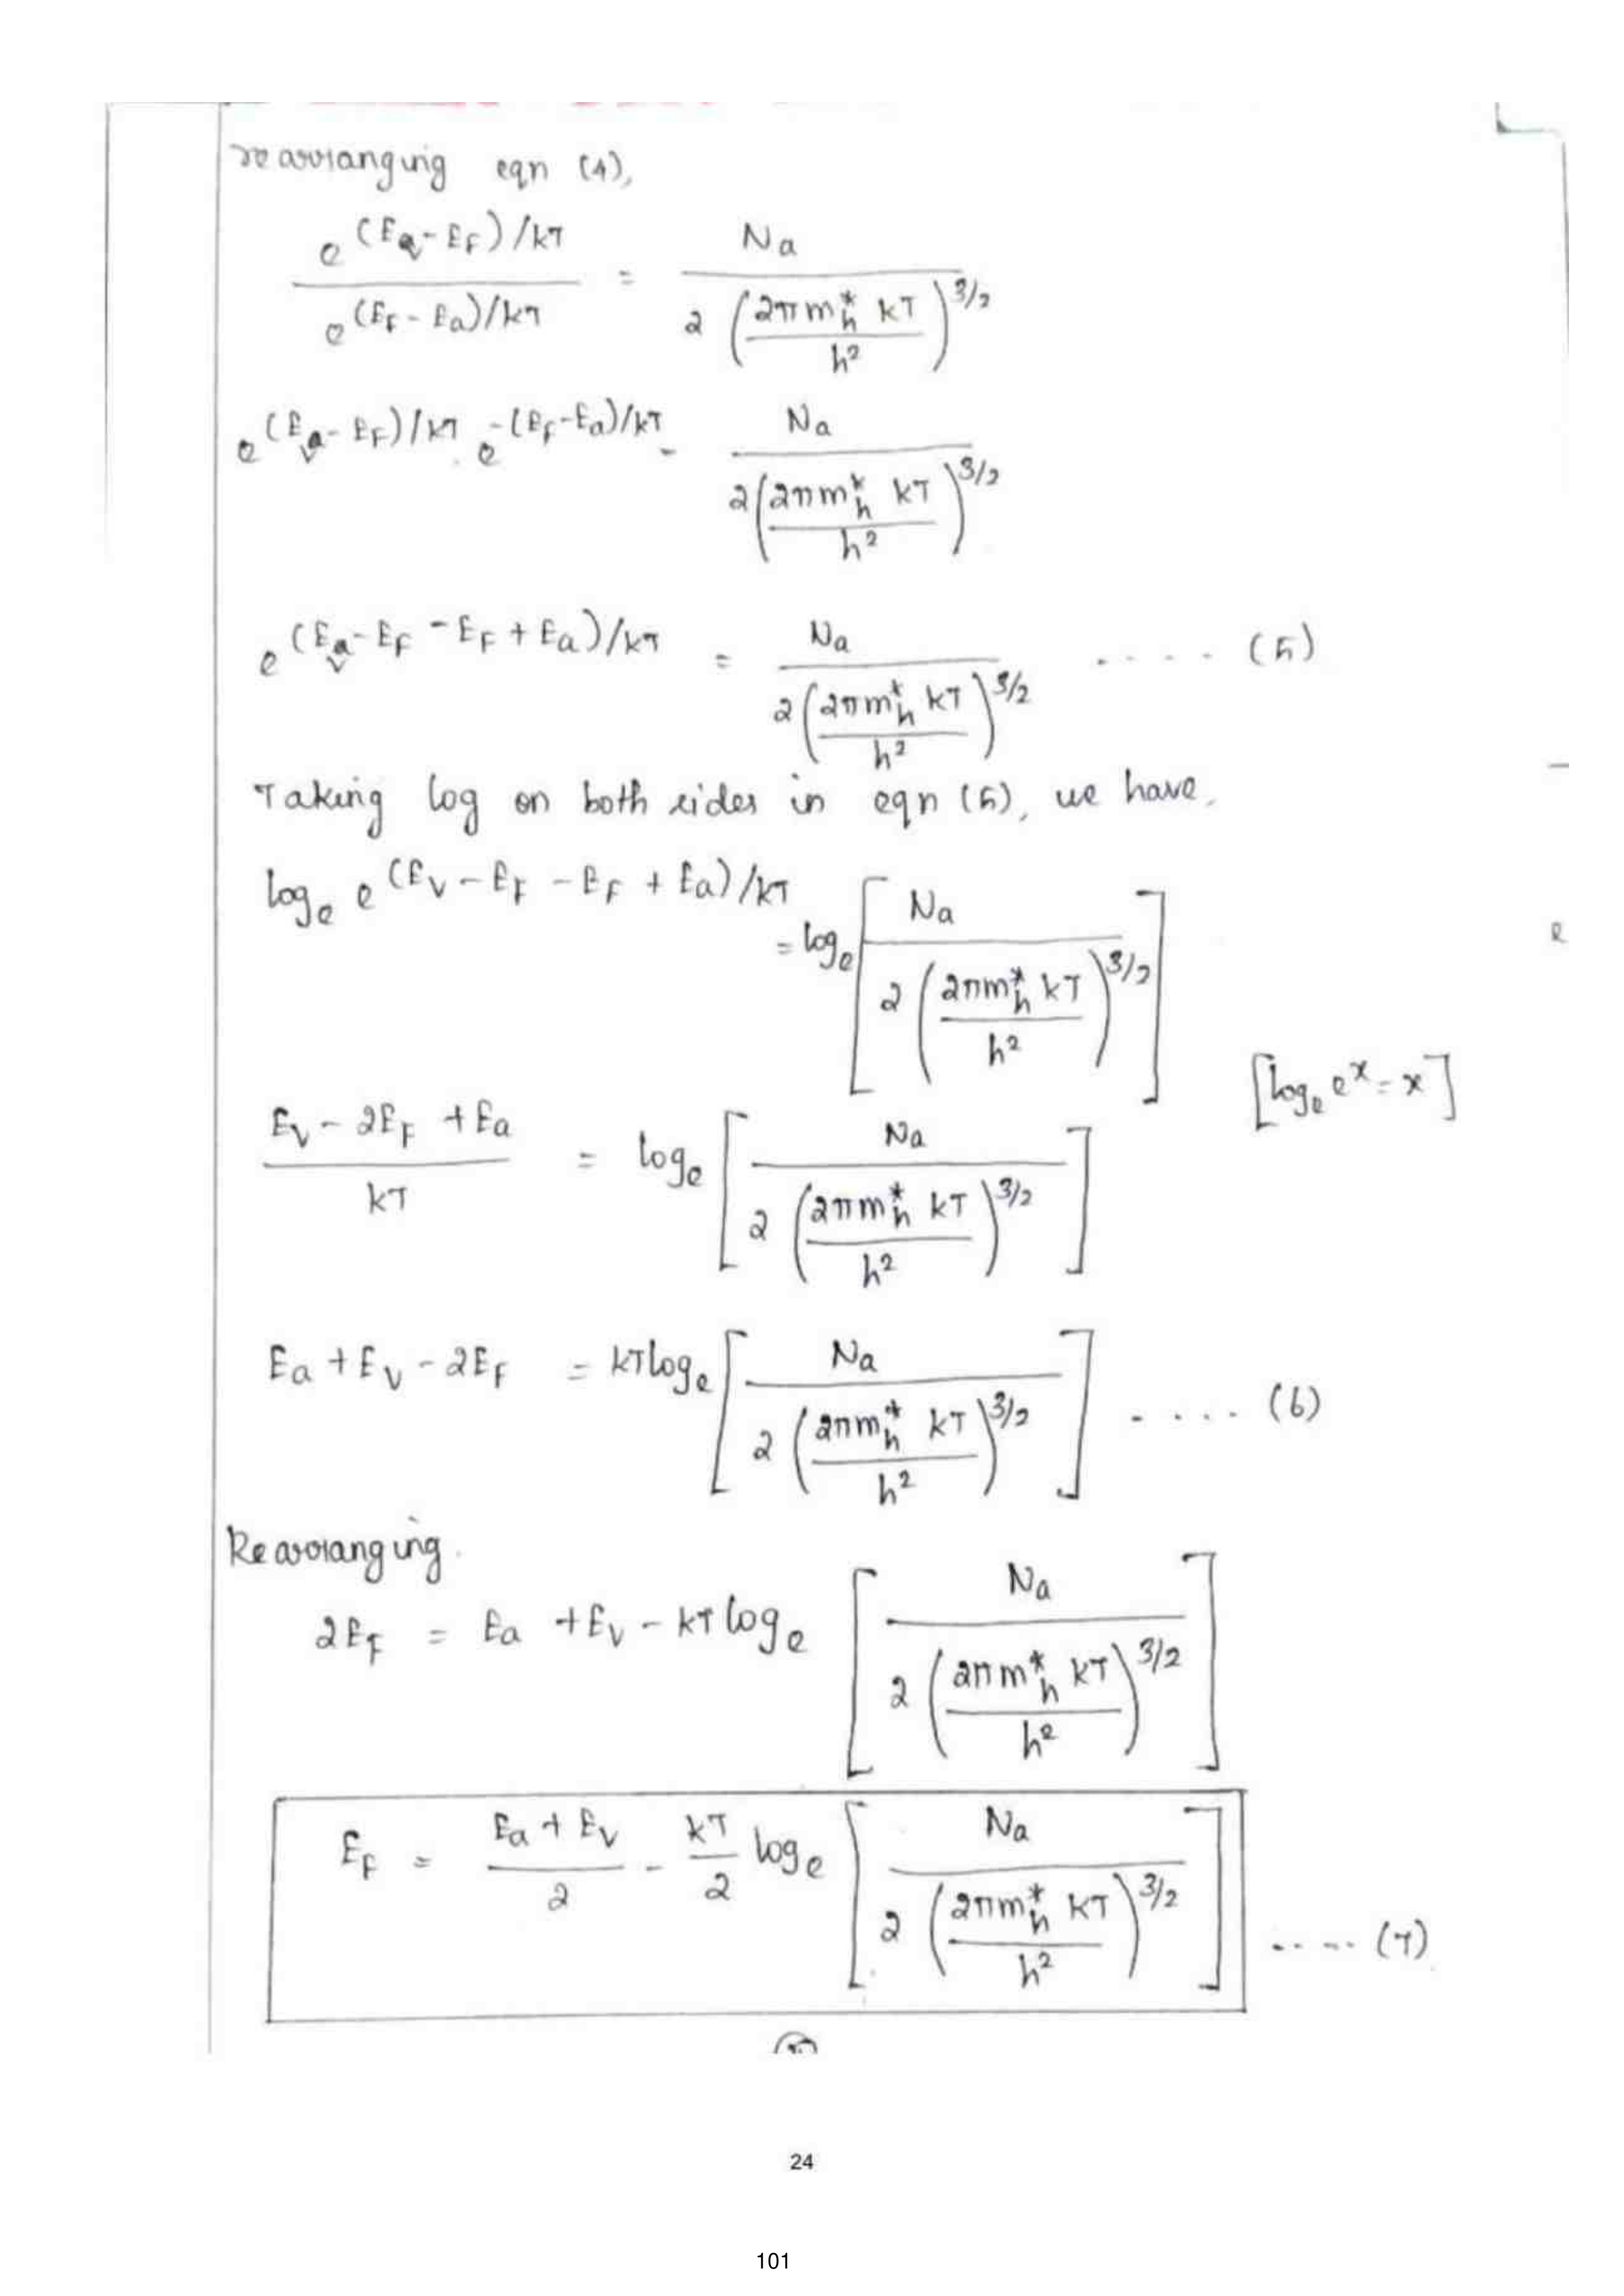 rearranging eqn (4),
e^(Ev - EF)/kT / e^(EF - Ea)/kT = Na / 2 (2πm*h kT / h²)^3/2
e^(Ev - EF)/kT . e^-(EF - Ea)/kT = Na / 2 (2πm*h kT / h²)^3/2
e^(Ev - EF - EF + Ea)/kT = Na / 2 (2πm*h kT / h²)^3/2 ..... (5)
Taking log on both sides in eqn (5), we have,
loge e^(EV - EF - EF + Ea)/kT
= loge [Na / 2 (2πm*h kT / h²)^3/2]
[loge e^x = x]
EV - 2EF + Ea / kT = loge [Na / 2 (2πm*h kT / h²)^3/2]
Ea + EV - 2EF = kT loge [Na / 2 (2πm*h kT / h²)^3/2] ..... (6)
Rearranging.
2EF = Ea + EV - kT loge [Na / 2 (2πm*h kT / h²)^3/2]
EF = Ea + EV / 2 - kT / 2 loge [Na / 2 (2πm*h kT / h²)^3/2] ..... (7)
24
101